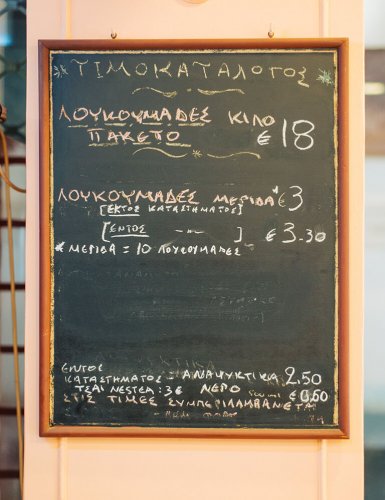 ΤΙΜΟΚΑΤΑΛΟΓΟΣ
ΛΟΥΚΟΥΜΑΔΕΣ ΚΙΛΟ
ΠΑΚΕΤΟ € 18
ΛΟΥΚΟΥΜΑΔΕΣ ΜΕΡΙΔΑ* € 3
[ΕΚΤΟΣ ΚΑΤΑΣΤΗΜΑΤΟΣ]
[ΕΝΤΟΣ -〃- ] € 3.30
* ΜΕΡΙΔΑ = 10 ΛΟΥΚΟΥΜΑΔΕΣ
ΕΝΤΟΣ
ΚΑΤΑΣΤΗΜΑΤΟΣ - ΑΝΑΨΥΚΤΙΚΑ 2,50
ΤΣΑΙ NESTEA: 3€ ΝΕΡΟ € 0,50
ΣΤΙΣ ΤΙΜΕΣ ΣΥΜΠΕΡΙΛΑΜΒΑΝΕΤΑΙ